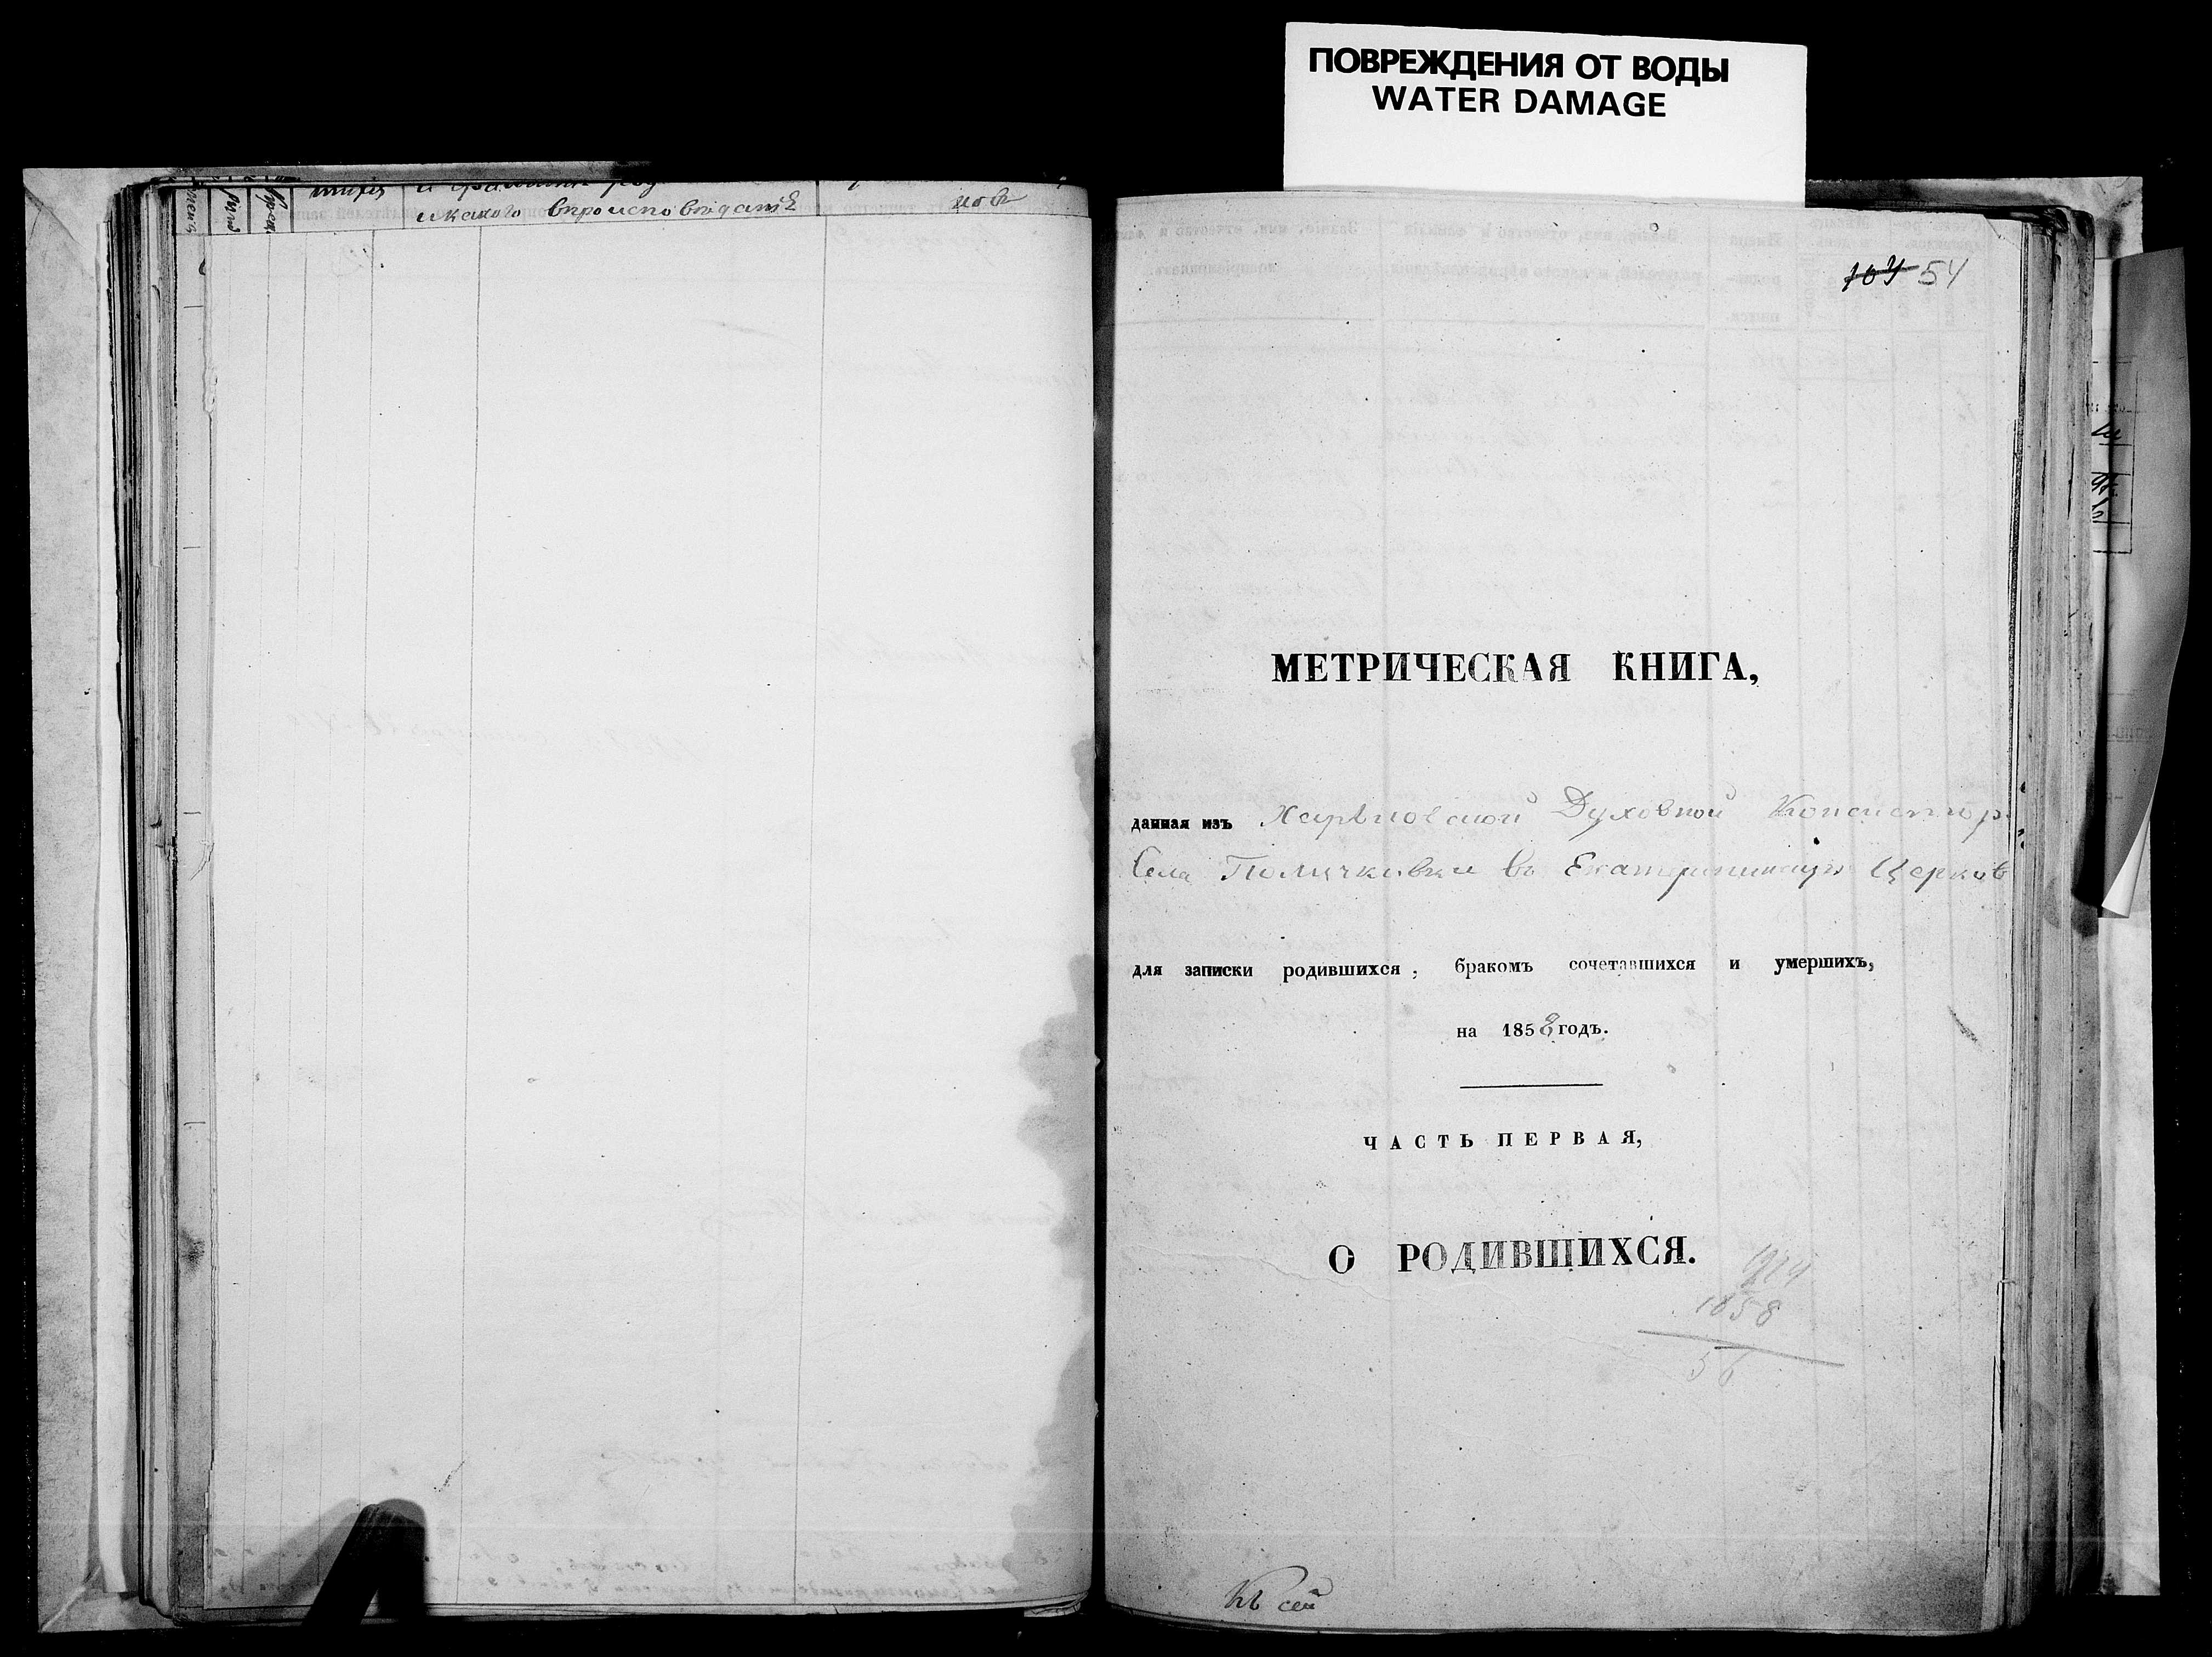 ПОВРЕЖДЕНИЯ ОТ ВОДЫ
WATER DAMAGE
и какого вѣроисповѣданiя
54
МЕТРИЧЕСКАЯ КНИГА,
данная изъ Харьковской Духовной Консистор
Села Поличковки въ Екатерининскую Церков
для записки родившихся, бракомъ сочетавшихся и умершихъ,
на 1858 годъ.
ЧАСТЬ ПЕРВАЯ,
О РОДИВШИХСЯ.
1914
1858
56
Къ сей